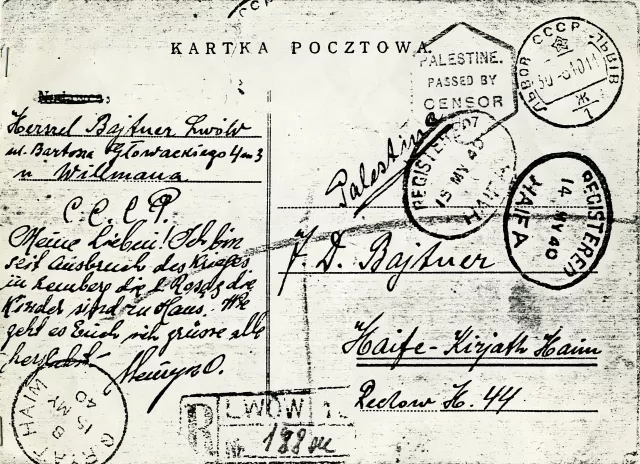 KARTKA POCZTOWA.
Herszel Bajtner Lwów
ul. Bartosza Głowackiego 4 m 3
u Willmana
C.C.C.P.
Meine Lieben! Ich bin
seit Ausbruch des Krieges
in Lemberg die l. Rosa & die
Kinder sind zu Haus. Wie
geht es Euch ich grüsse alle
herzlichst
PALESTINE.
PASSED BY
CENSOR
ЛЬВОВ СССР ЛЬВІВ
Ж
1
Palestina
REGISTERED
15 MY 40
HAIFA
REGISTERED
14 MY 40
HAIFA
D. Bajtner
Haife-Kirjath Haim
Rechow H. 44
R LWÓW 1
Nr. 198
HAIM
15 MY
40